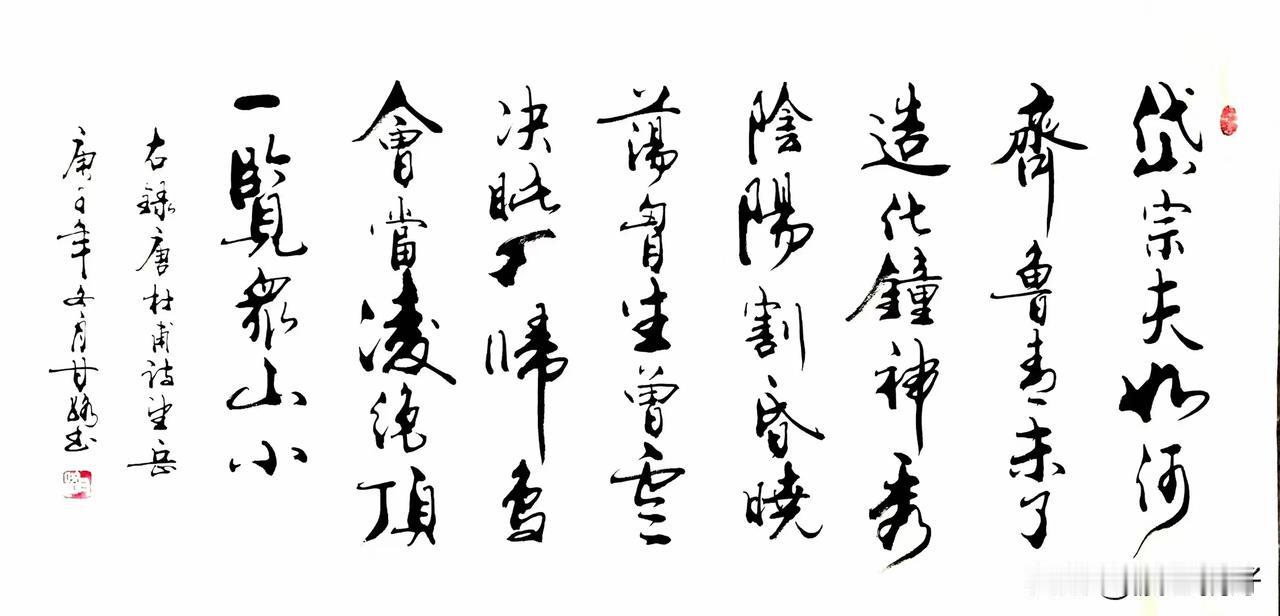 岱宗夫如何
齊魯青未了
造化鐘神秀
陰陽割昏曉
蕩胷生曾雲
决眦入歸鳥
會當淩絶頂
一覽衆山小
右録唐杜甫詩望岳
庚子年冬月甘書